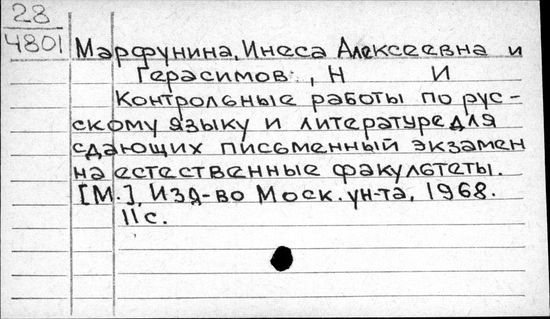 28
4801
Марфунина, Инеса Алексеевна и
Герасимов, Н И
Контрольные работы по рус-
скому языку и литературе для
сдающих письменный экзамен
на естественные факультеты.
[М.], Изд-во Моск. ун-та, 1968.
11 с.